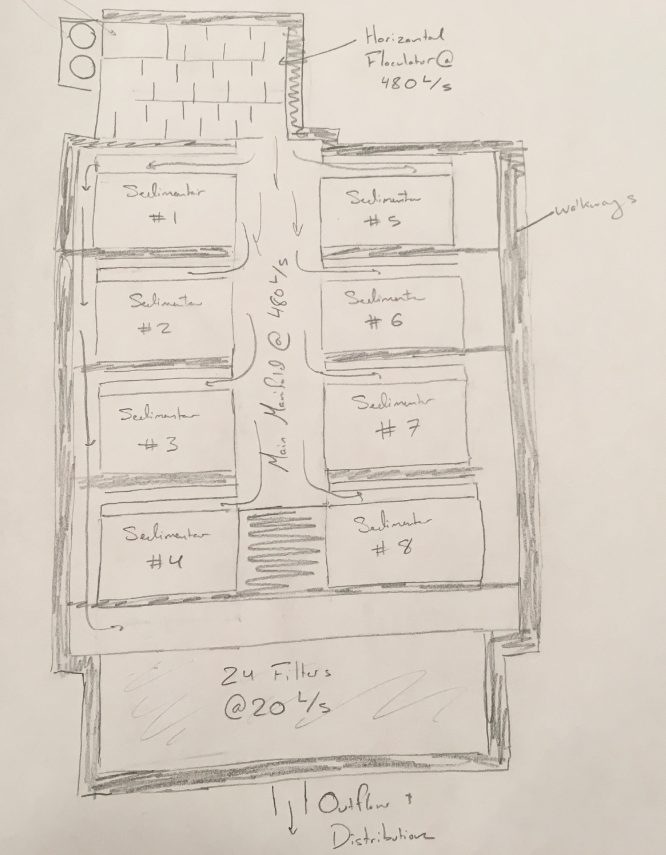 Horizontal
Floculator @
480 L/s
Sedimentor
#1
Sedimentor
#5
Walkways
Sedimentor
#2
Sedimentor
#6
Main Manifold @ 480 L/s
Sedimentor
#3
Sedimentor
#7
Sedimentor
#4
Sedimentor
#8
24 Filters
@ 20 L/s
Outflow &
Distribution